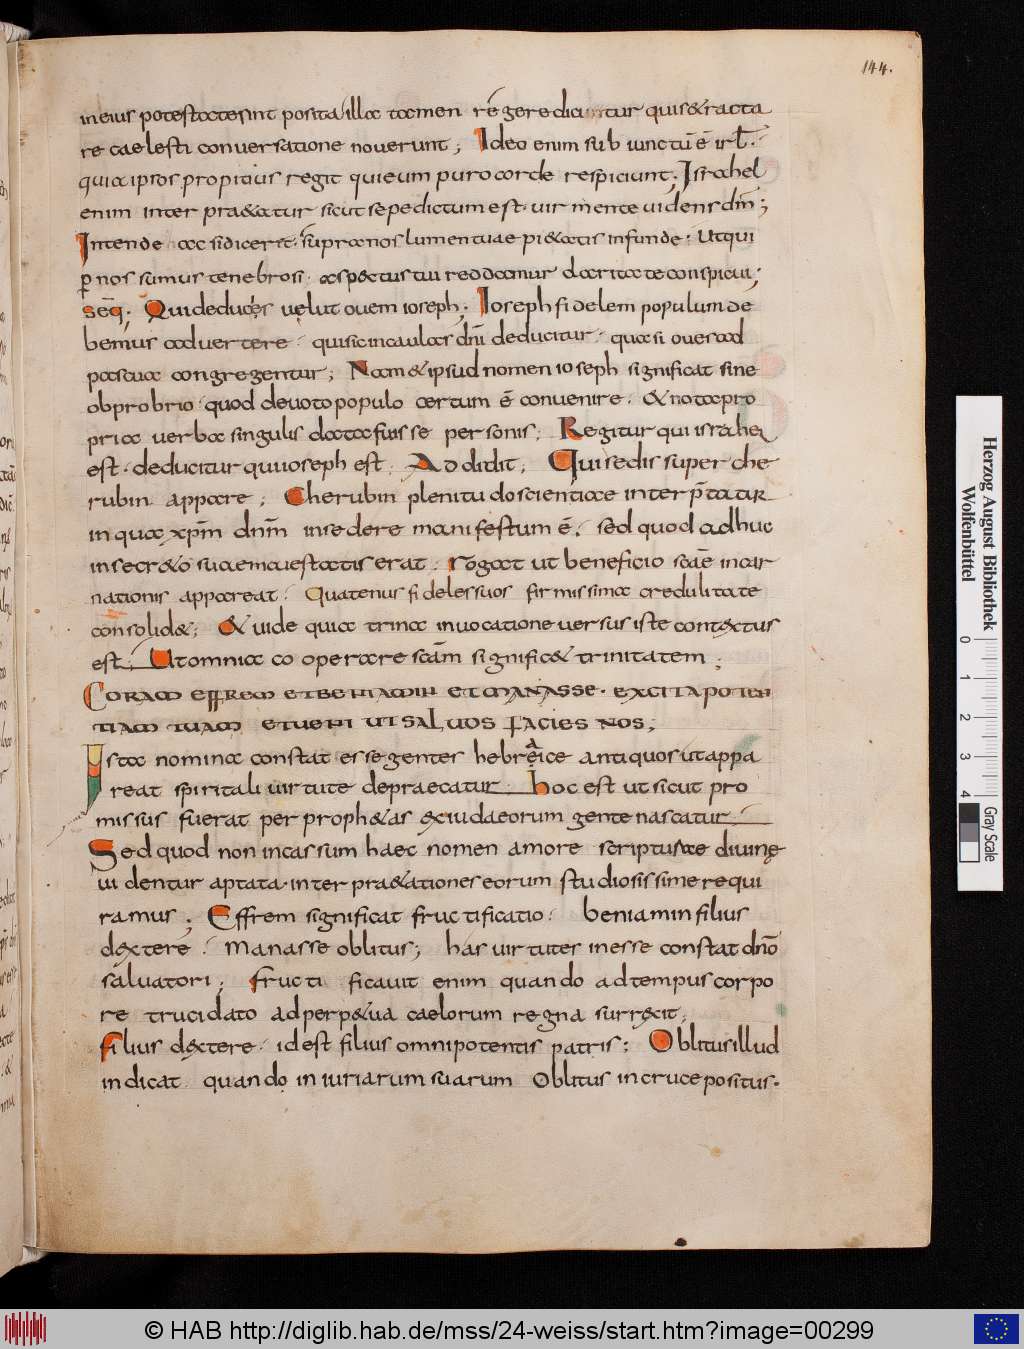 144.
in eius potestate sint posita illa tamen regere dicuntur qui s& racta
re caelesti conuersatione nouerunt; Ideo enim subiunctū ē irƚ.
quia ipsos propitius regit qui eum puro corde respiciunt. Israhel
enim inter pra&atur sicut sepe dictum est. uir mente uidens dm̄;
Intende ac si diceret. supra nos lumen tuae pi&atis infunde. Ut qui
ꝑ nos sumus tenebrosi. aspectus tui reddamur claritate conspicui;
seq̄. Qui deduces uelut ouem ioseph; Ioseph fidelem populum de
bemus aduertere. qui sic in caulas dn̄i deducitur. quasi oues ad
pascua congregentur; Nam & ipsud nomen ioseph significat sine
obprobrio. quod deuoto populo certum ē conuenire. & nota pro
pria uerba singulis data fuisse personis; Regitur qui israhel
est. deducitur qui ioseph est; Addidit; Qui sedis super che
rubin appare; Cherubin plenitudo scientiae interp̄tatur
in qua xp̄m dn̄m insedere manifestum ē. sed quod adhuc
in secr&o suae maiestatis erat. rogat ut beneficio scāe incar
nationis appareat. Quatenus fideles suos firmissima credulitate
consolid&; & uide quia trina inuocatione uersus iste contextus
est; Ut omnia cooperare scām signific& trinitatem;
CORAM EFFREM ET BENIAMIN ET MANASSE. EXCITA POTEN
TIAM TUAM ET UENI UT SALUOS FACIES NOS;
Ista nomina constat esse gentes hebreaice antiquos ut appa
reat spiritali uirtute depraecatur. hoc est ut sicut pro
missus fuerat per proph&as ex iudaeorum gente nascatur.
Sed quod non incassum haec nomen amore scripturae diuinę
uidentur aptata. inter pra&ationes eorum studiosissime requi
ramus; Effrem significat fructificatio. beniamin filius
dextere. Manasse oblitus; has uirtutes inesse constat dn̄o
saluatori; fructificauit enim quando ad tempus corpo
re trucidato ad perp&ua caelorum regna surrexit;
filius dextere. id est filius omnipotentis patris; Oblitus illud
indicat quando iniuriarum suarum oblitus in cruce positus.
Herzog August Bibliothek
Wolfenbüttel
0 1 2 3 4
Gray Scale
© HAB http://diglib.hab.de/mss/24-weiss/start.htm?image=00299